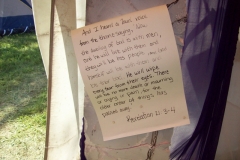 And I heard a loud voice
from the throne saying, "Look,
the dwelling of God is with men,
and he will live with them and
they will be his people,
himself will be with them
He will wipe
every tear from their eyes. There
will be no more death or mourning
or crying or pain, for the
older order of things has
passed away."
Revelation 21 3-4